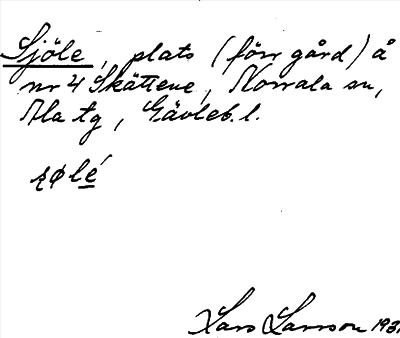 Sjöle, plats (förr gård) å
nr 4 Skättene, Norrala sn,
Ala tg, Gävleb. l.
ʂølé
Lars Larsson 193